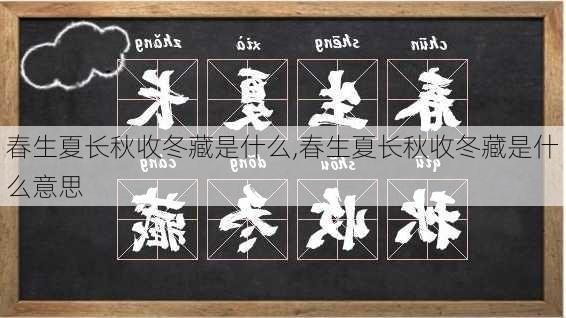 chūn shēng xià zhǎng
春生夏长
春生夏长秋收冬藏是什么,春生夏长秋收冬藏是什
么意思
qiū shōu dōng cáng
秋收冬藏